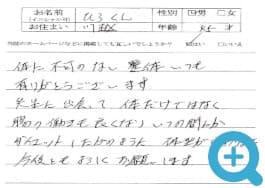 お名前 ひろくん 性別 男 □女
(イニシャル可)
お住まい 川越 年齢 才
当院のホームページなどに掲載しても宜しいでしょうか？ はい □いいえ
体に 不可のない 整体 いつも
有りがとうございます
先生に 出会って 体だけではなく
腸の 働きも 良くなり いつの間にか
ダイエット したかのように 体
今後とも よろしく お願いします